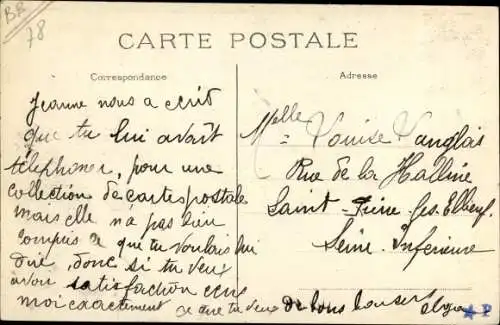 BR
78
CARTE POSTALE
Correspondance
Jeanne nous a ecrit
que tu lui avait
téléphoner, pour une
collection de cartes postale
mais elle na pas bien
compris ce que tu voulais lui
dire, donc si tu veux
avoir satisfaction ecris
moi exactement ce que tu veux
de bons baisers
Adresse
Melle Louise Langlais
Rue de la Halline
Saint-Pierre les Elbeuf
Seine-Inferieure